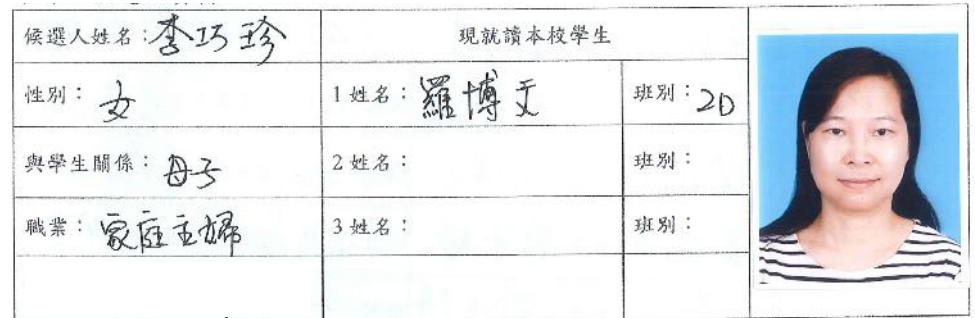 候選人姓名：李巧珍 現就讀本校學生
性別：女 1 姓名：羅博文 班別：2D
與學生關係：母子 2 姓名： 班別：
職業：家庭主婦 3 姓名： 班別：